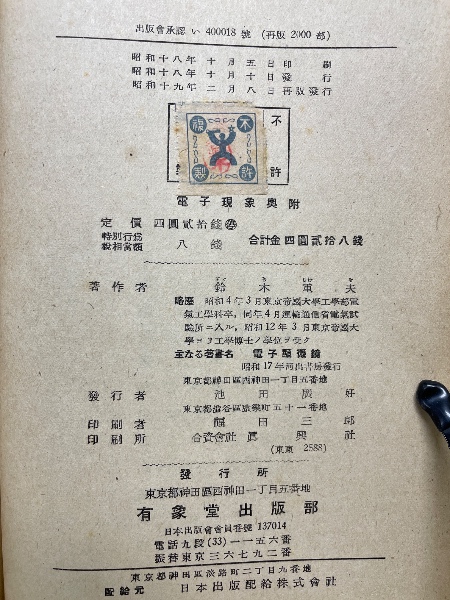 出版會承認 い 400018 號 (再版 2000 部)
昭和十八年 十 月 五 日 印 刷
昭和十八年 十 月 十 日 發 行
昭和十九年 二 月 八 日 再版發行
不許
複製
電子現象奥附
定價 四圓貳拾錢 停
特別行爲税相當額 八錢 合計金 四圓貳拾八錢
著作者 鈴木重夫
略歴 昭和4年3月東京帝國大學工學部電
氣工學科卒,同年4月運輸通信省電氣試
驗所ニ入ル,昭和12年3月東京帝國大
學ヨリ工學博士ノ學位ヲ受ク
主なる著書名 電子顯微鏡
昭和17年河出書房發行
東京都神田區西神田一丁目五番地
發行者 池田 好
東京都澁谷區 町五十一番地
印刷者 熊田三郎
印刷所 合資會社 眞興社
(東東 2588)
發行所
東京都神田區西神田一丁目五番地
有象堂出版部
日本出版會會員番號 137014
電話九段(33)一一五六番
振替東京三六七九二番
東京都神田區淡路町二丁目九番地
配給元 日本出版配給株式會社